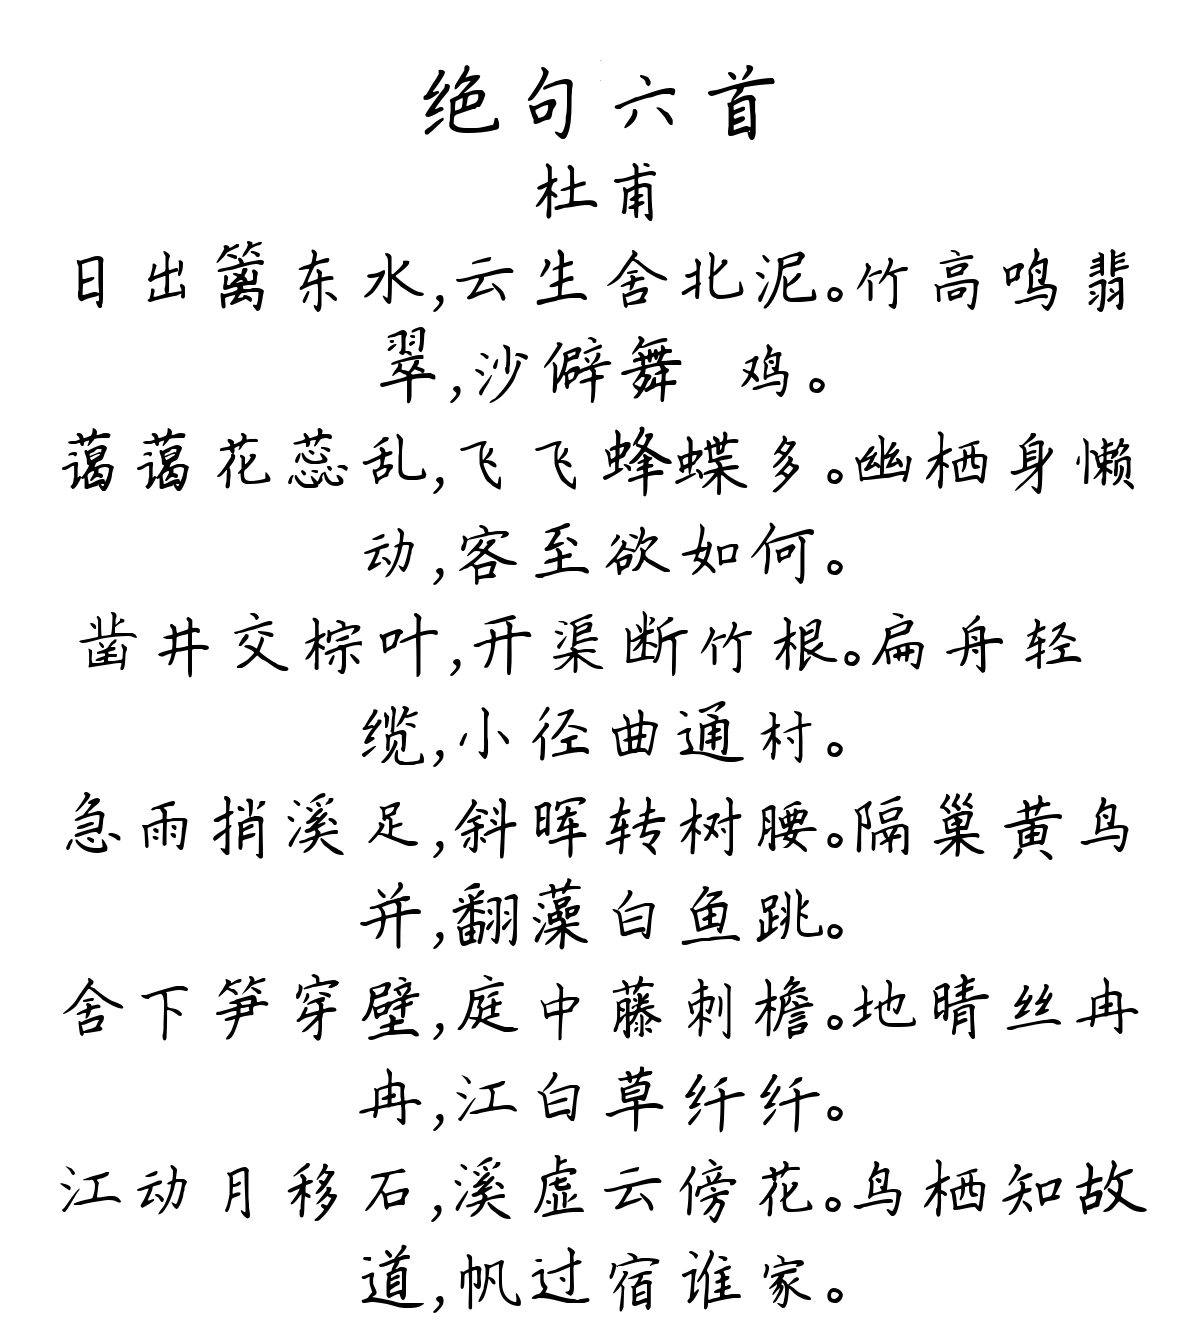 绝句六首
杜甫
日出篱东水,云生舍北泥。竹高鸣翡
翠,沙僻舞 鸡。
蔼蔼花蕊乱,飞飞蜂蝶多。幽栖身懒
动,客至欲如何。
凿井交棕叶,开渠断竹根。扁舟轻
缆,小径曲通村。
急雨捎溪足,斜晖转树腰。隔巢黄鸟
并,翻藻白鱼跳。
舍下笋穿壁,庭中藤刺檐。地晴丝冉
冉,江白草纤纤。
江动月移石,溪虚云傍花。鸟栖知故
道,帆过宿谁家。